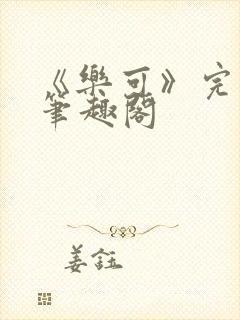 《樂可》完
筆趣閣
姜鈺